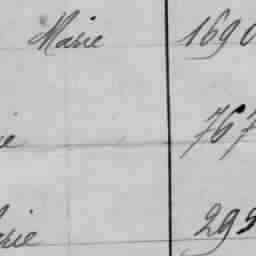 Marie 1690
ie 767
arie 295